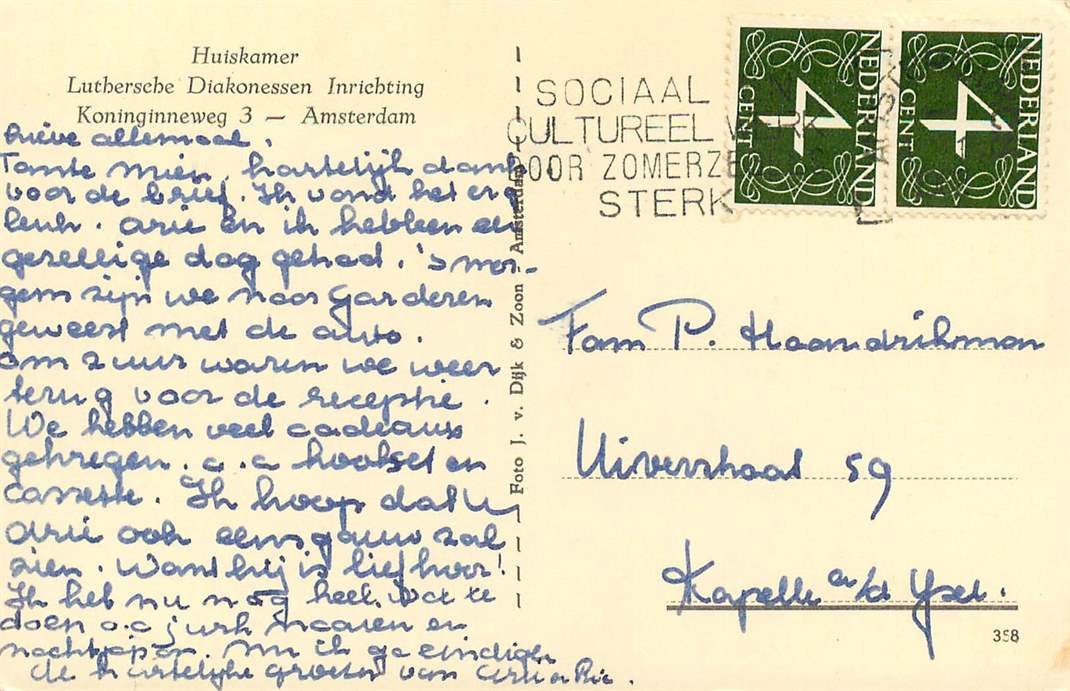 Huiskamer
Luthersche Diakonessen Inrichting
Koninginneweg 3 — Amsterdam
Lieve allemaal.
Tante Mien, hartelijk dank
voor de brief. Ik vond het erg
leuk. Arie en ik hebben een
gezellige dag gehad. 's mor-
gens zijn we naar Garderen
geweest met de auto.
om 2 uur waren we weer
terug voor de receptie.
We hebben veel cadeaux
gekregen. o.a kookset en
cassette. Ik hoop dat u
Arie ook eens gauw zal
zien. Want hij is lief hoor!
Ik heb nu nog heel wat te
doen o.a jurk naaien en
nachtjapon. Nu ik ga eindigen
de hartelijke groeten van Arie en Rie.
Foto J. v. Dijk & Zoon - Amsterdam
SOCIAAL
CULTUREEL WERK
DOOR ZOMERZEGELS
STERK
NEDERLAND
4
CENT
NEDERLAND
4
CENT
Fam P. Haandrikman
Uiverstraat 59
Kapelle a/d Ysel.
358